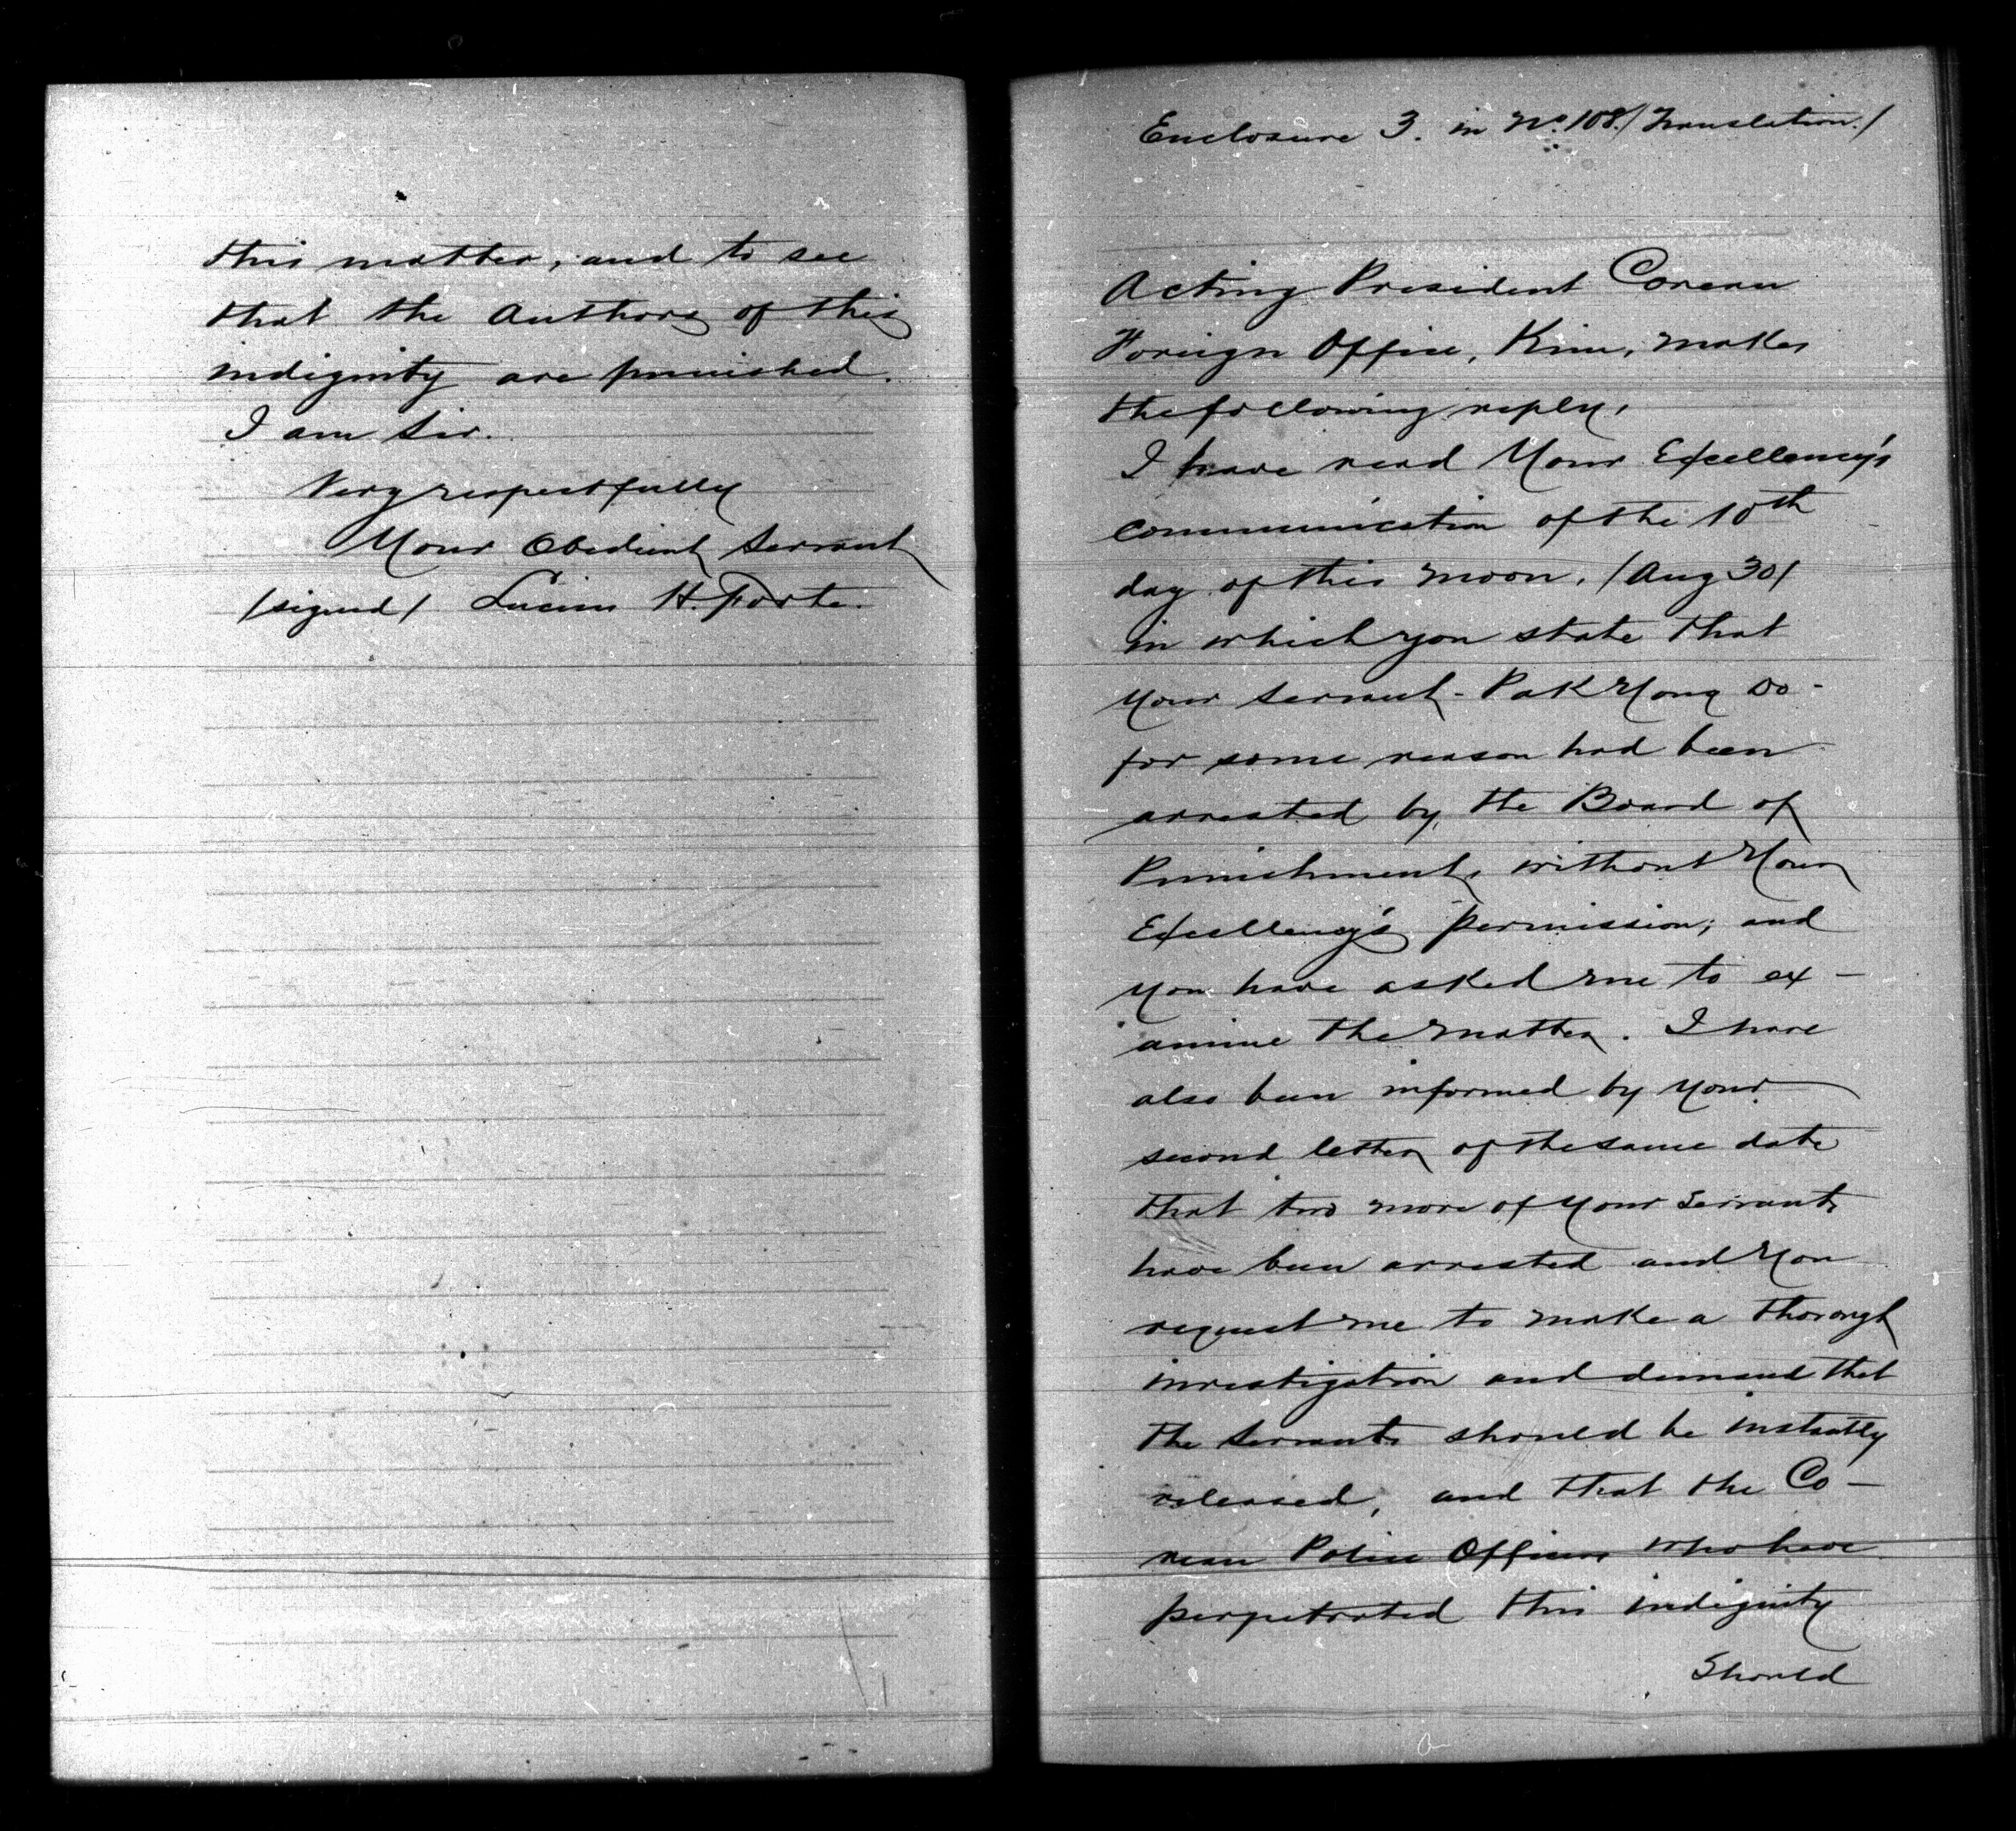 this matter, and to see
that the Authors of this
indignity are punished.
I am Sir.
Very respectfully
Your Obedient Servant
/signed/ Lucius H. Foote.
Enclosure 3. in No. 108. /Translation./
Acting President Corean
Foreign Office, Kim, makes
the following reply,
I have read Your Excellency's
communication of the 10th
day of this moon, /Aug 30/
in which you state that
your Servant - Pak Yong
for some reason had been
arrested by the Board of
Punishments without Your
Excellency's permission; and
you have asked me to ex-
amine the matter. I have
also been informed by your
second letter of the same date
that two more of your Servants
have been arrested and You
request me to make a thorough
investigation and demand that
the Servants should be instantly
released, and that the Co-
rean Police Officers who have
perpetrated this indignity
Should